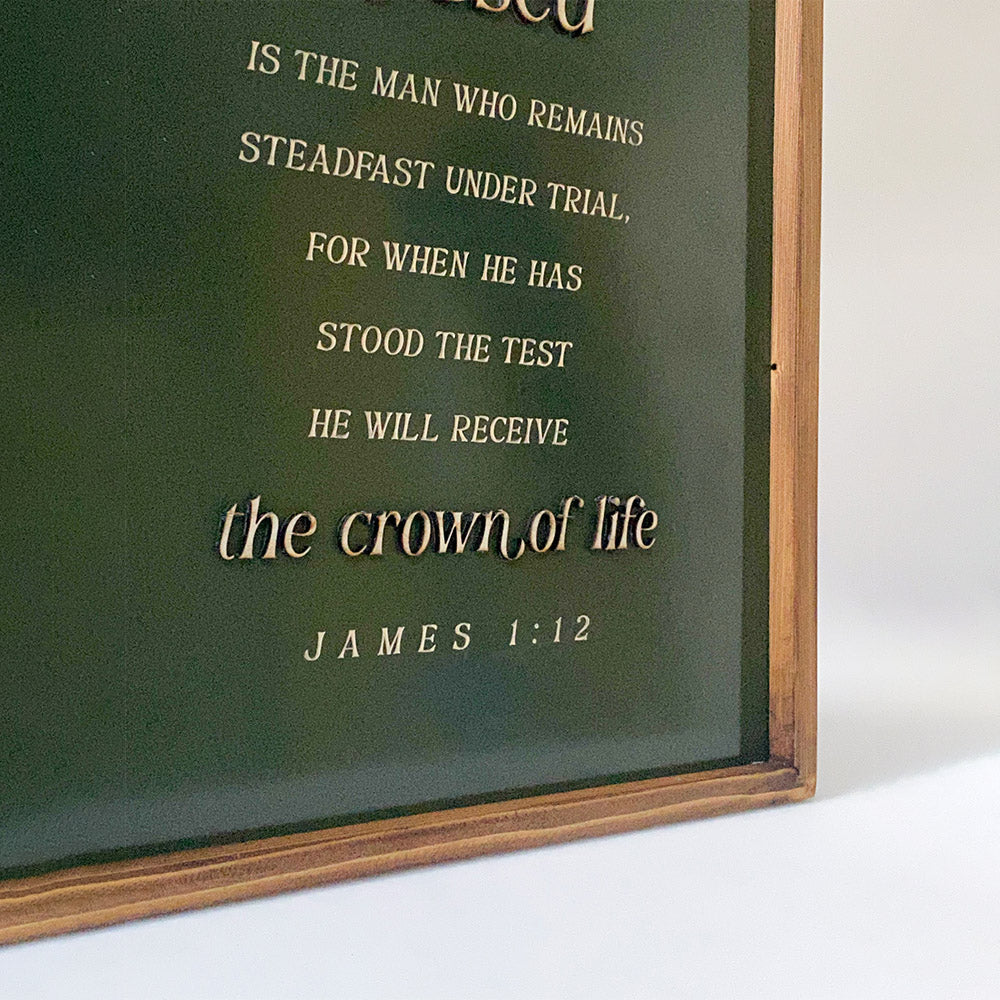 IS THE MAN WHO REMAINS
STEADFAST UNDER TRIAL,
FOR WHEN HE HAS
STOOD THE TEST
HE WILL RECEIVE
the crown of life
JAMES 1:12